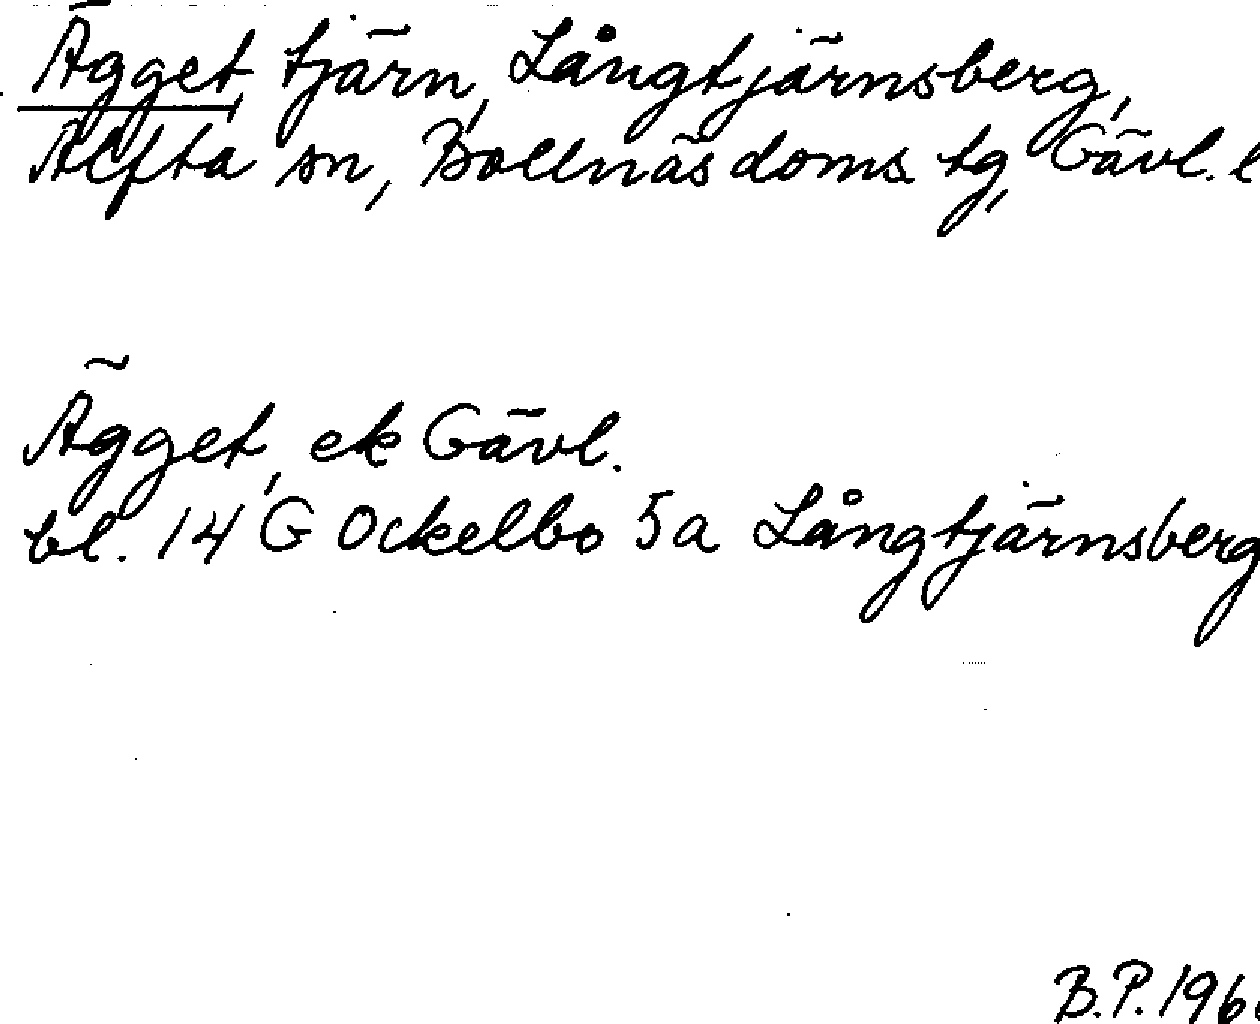 Ägget, tjärn, Långtjärnsberg,
Alfta sn, Bollnäs doms. tg, Gävl. l
Ägget, ek Gävl.
bl. 14 G Ockelbo 5a Långtjärnsberg
B.P. 196